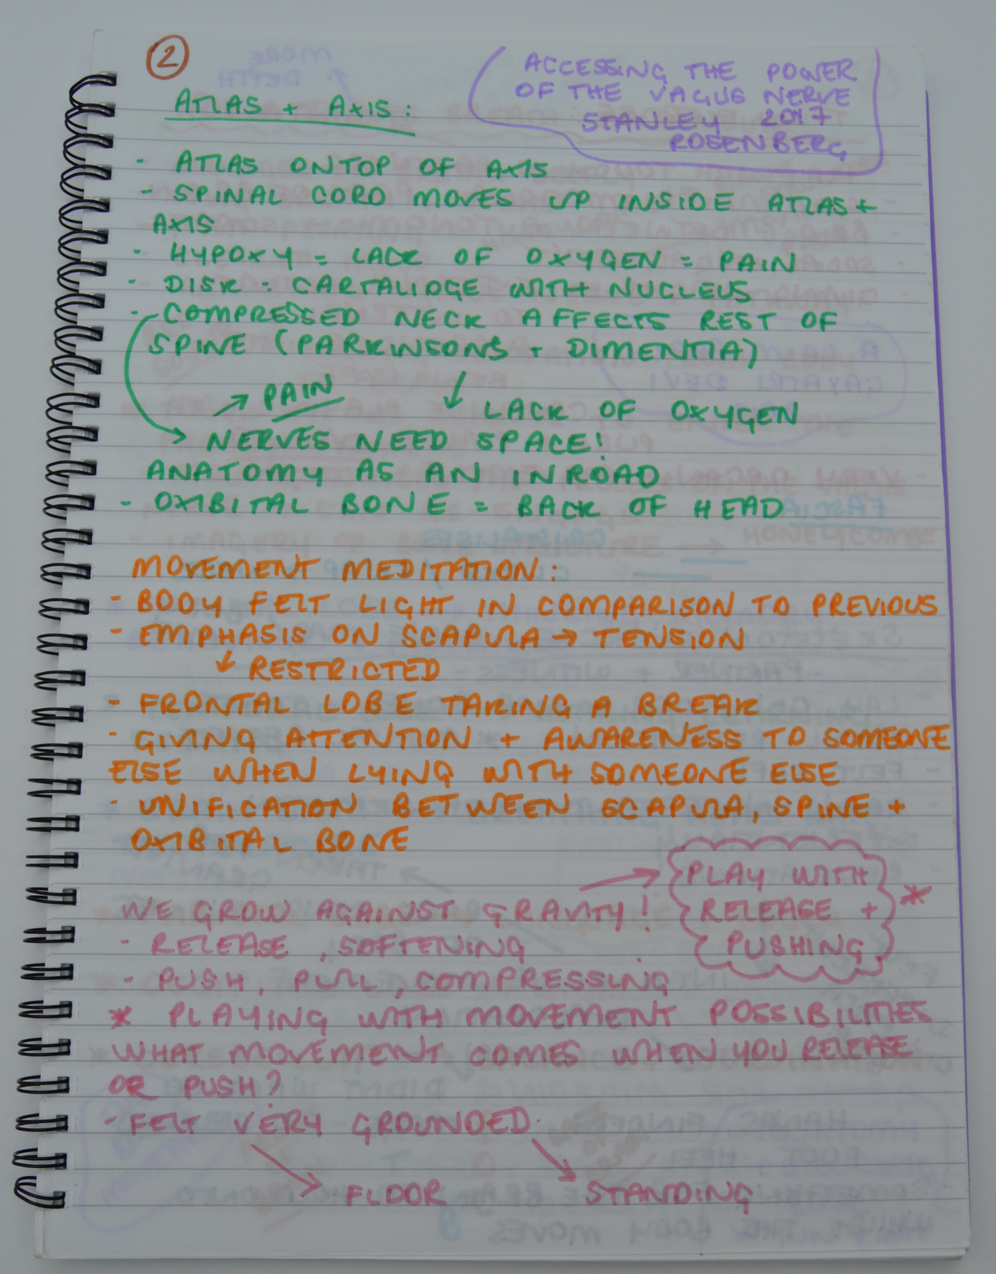 2
ACCESSING THE POWER
OF THE VAGUS NERVE
STANLEY 2017
ROSENBERG
ATLAS + AXIS:
- ATLAS ONTOP OF AXIS
- SPINAL CORD MOVES UP INSIDE ATLAS +
AXIS
- HYPOXY = LACK OF OXYGEN = PAIN
- DISK = CARTALIDGE WITH NUCLEUS
- COMPRESSED NECK AFFECTS REST OF
SPINE (PARKINSONS + DIMENTIA)
→ PAIN
↓ LACK OF OXYGEN
→ NERVES NEED SPACE!
ANATOMY AS AN INROAD
- OXIBITAL BONE = BACK OF HEAD
MOVEMENT MEDITATION:
- BODY FELT LIGHT IN COMPARISON TO PREVIOUS
- EMPHASIS ON SCAPULA → TENSION
↓ RESTRICTED
- FRONTAL LOBE TAKING A BREAK
- GIVING ATTENTION + AWARENESS TO SOMEONE
ELSE WHEN LYING WITH SOMEONE ELSE
- UNIFICATION BETWEEN SCAPULA, SPINE +
OXIBITAL BONE
WE GROW AGAINST GRAVITY! → PLAY WITH
RELEASE + *
PUSHING
- RELEASE, SOFTENING
- PUSH, PULL, COMPRESSING
* PLAYING WITH MOVEMENT POSSIBILITIES
WHAT MOVEMENT COMES WHEN YOU RELEASE
OR PUSH?
- FELT VERY GROUNDED.
→ FLOOR → STANDING